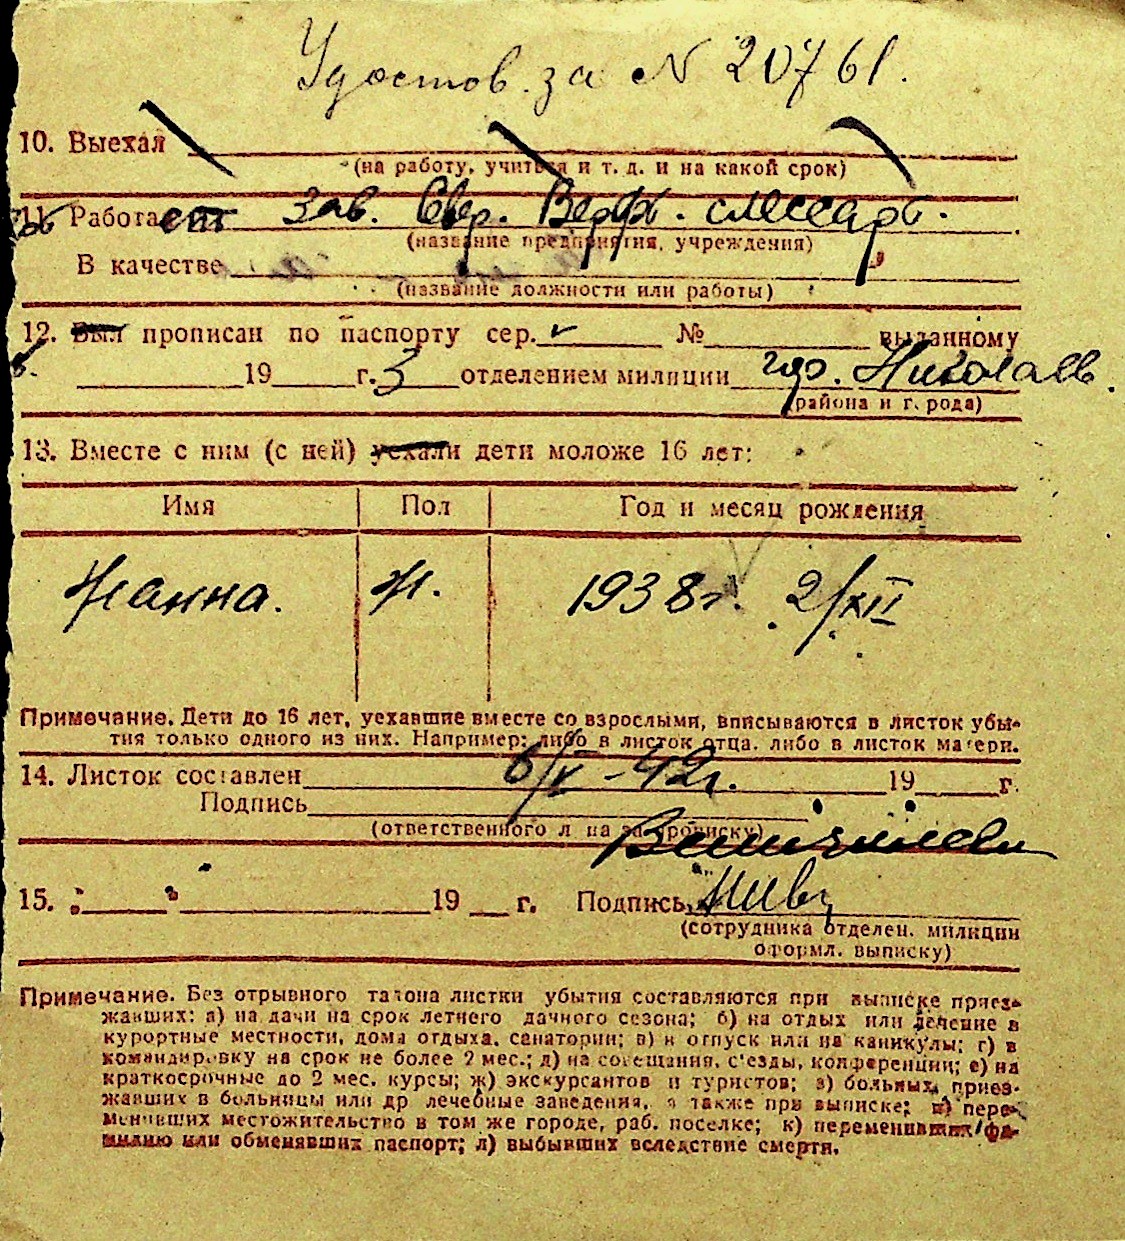 Удостов. за № 20761.
10. Выехал
(на работу, учиться и т. д. и на какой срок)
11. Работает зав. Свер. Верф. слесарь.
(название предприятия, учреждения)
В качестве
(название должности или работы)
12. Был прописан по паспорту сер. № выданному
19 г. 3 отделением милиции гор. Николаев.
(района и г. рода)
13. Вместе с ним (с ней) уехали дети моложе 16 лет:
Имя Пол Год и месяц рождения
Жанна. Ж. 1938г. 2/XII
Примечание. Дети до 16 лет, уехавшие вместе со взрослыми, вписываются в листок убы-
тия только одного из них. Например: либо в листок отца, либо в листок матери.
14. Листок составлен 6/V - 42г. 19 г.
Подпись
(ответственного л на за прописку)
15. " " 19 г. Подпись
(сотрудника отделен. милиции
оформл. выписку)
Примечание. Без отрывного талона листки убытия составляются при выписке приез-
жавших: а) на дачи на срок летнего дачного сезона; б) на отдых или лечение в
курортные местности, дома отдыха, санатории; в) в отпуск или на каникулы; г) в
командировку на срок не более 2 мес.; д) на совещания, с'езды, конференции; е) на
краткосрочные до 2 мес. курсы; ж) экскурсантов и туристов; з) больных, приез-
жавших в больницы или др лечебные заведения, а также при выписке; и) пере-
менивших местожительство в том же городе, раб. поселке; к) переменивших фа-
милию или обменявших паспорт; л) выбывших вследствие смерти.